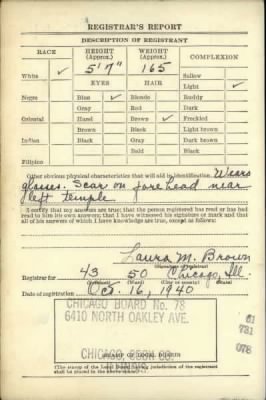 REGISTRAR'S REPORT
DESCRIPTION OF REGISTRANT
RACE HEIGHT (Approx.) WEIGHT (Approx.) COMPLEXION
5' 7" 165
White ✓ Sallow
EYES HAIR Light ✓
Negro Blue ✓ Blonde Ruddy
Gray Red Dark
Oriental Hazel Brown ✓ Freckled
Brown Black Light brown
Indian Black Gray Dark brown
Bald Black
Filipino
Other obvious physical characteristics that will aid in identification. Wears
glasses. Scar on fore head near
left temple
I certify that my answers are true; that the person registered has read or has had
read to him his own answers; that I have witnessed his signature or mark and that
all of his answers of which I have knowledge are true, except as follows:
Laura M. Brown
(Signature of Registrar)
Registrar for 43 50 Chicago, Ill.
(Ward) (City or county) (State)
Date of registration Oct. 16, 1940
CHICAGO BOARD No. 78
6410 NORTH OAKLEY AVE.
CHICAGO, COOK CO.
ILLINOIS
STAMP OF LOCAL BOARD
(The stamp of the Local Board having jurisdiction of the registrant
shall be placed in the above space.)
731
078